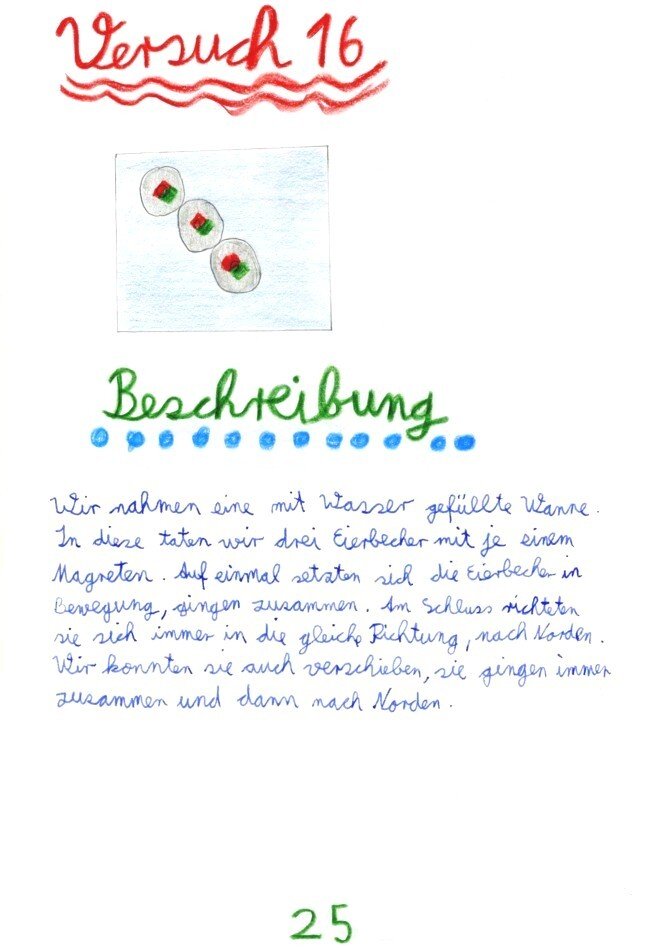 Versuch 16
Beschreibung
Wir nahmen eine mit Wasser gefüllte Wanne.
In diese taten wir drei Eierbecher mit je einem
Magneten. Auf einmal setzten sich die Eierbecher in
Bewegung, gingen zusammen. Am Schluss richteten
sie sich immer in die gleiche Richtung, nach Norden.
Wir konnten sie auch verschieben, sie gingen immer
zusammen und dann nach Norden.
25